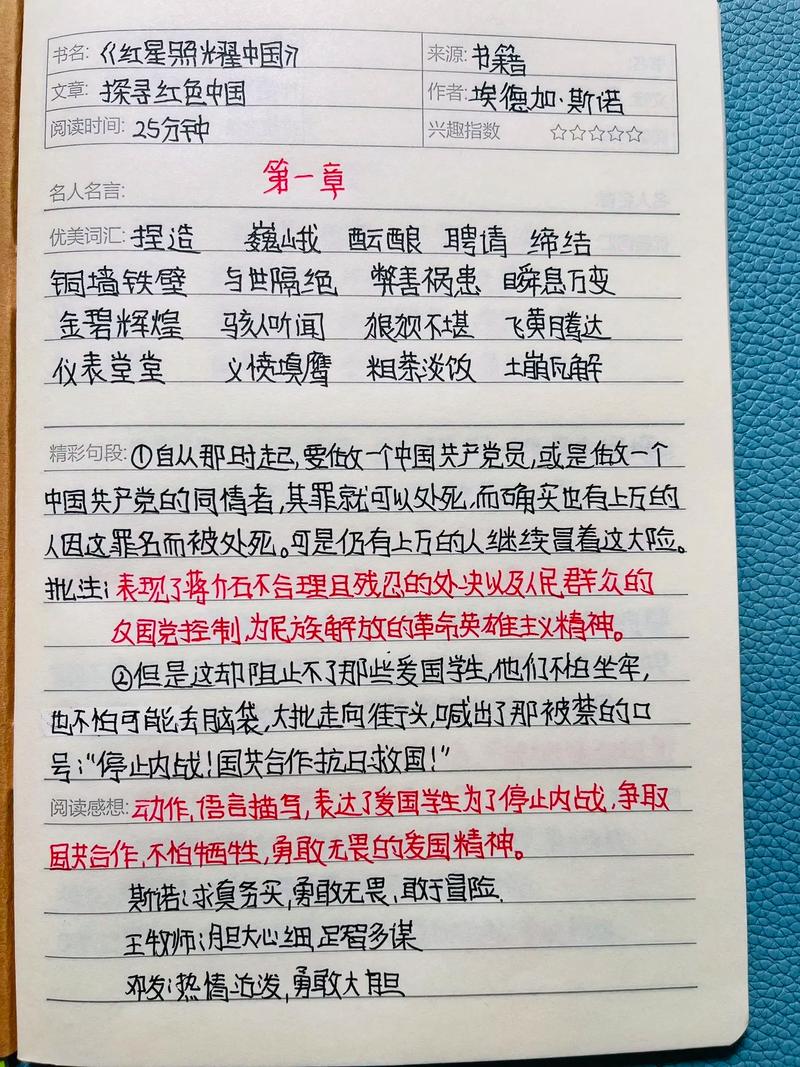 书名:《红星照耀中国》 来源:书籍
文章:探寻红色中国 作者:埃德加·斯诺
阅读时间:25分钟 兴趣指数 ☆☆☆☆☆
第一章
名人名言:
优美词汇:捏造 巍峨 酝酿 聘请 缔结
铜墙铁壁 与世隔绝 弊害祸患 瞬息万变
金碧辉煌 骇人听闻 狼狈不堪 飞黄腾达
仪表堂堂 义愤填膺 粗茶淡饭 土崩瓦解
精彩句段:①自从那时起,要做一个中国共产党员,或是做一个
中国共产党的同情者,其罪就可以处死,而确实也有上万的
人因这罪名而被处死。可是仍有上万的人继续冒着这大险。
批注:表现了蒋介石不合理且残忍的处决以及人民群众的
反国党控制,为民族解放的革命英雄主义精神。
②但是这却阻止不了那些爱国学生,他们不怕坐牢,
也不怕可能丢脑袋,大批走向街头,喊出了那被禁的口
号:“停止内战!国共合作抗日救国!”
阅读感想:动作,语言描写,表达了爱国学生为了停止内战,争取
国共合作,不怕牺牲,勇敢无畏的爱国精神。
斯诺:求真务实,勇敢无畏,敢于冒险.
王牧师:胆大心细,足智多谋
邓发:热情活泼,勇敢大胆